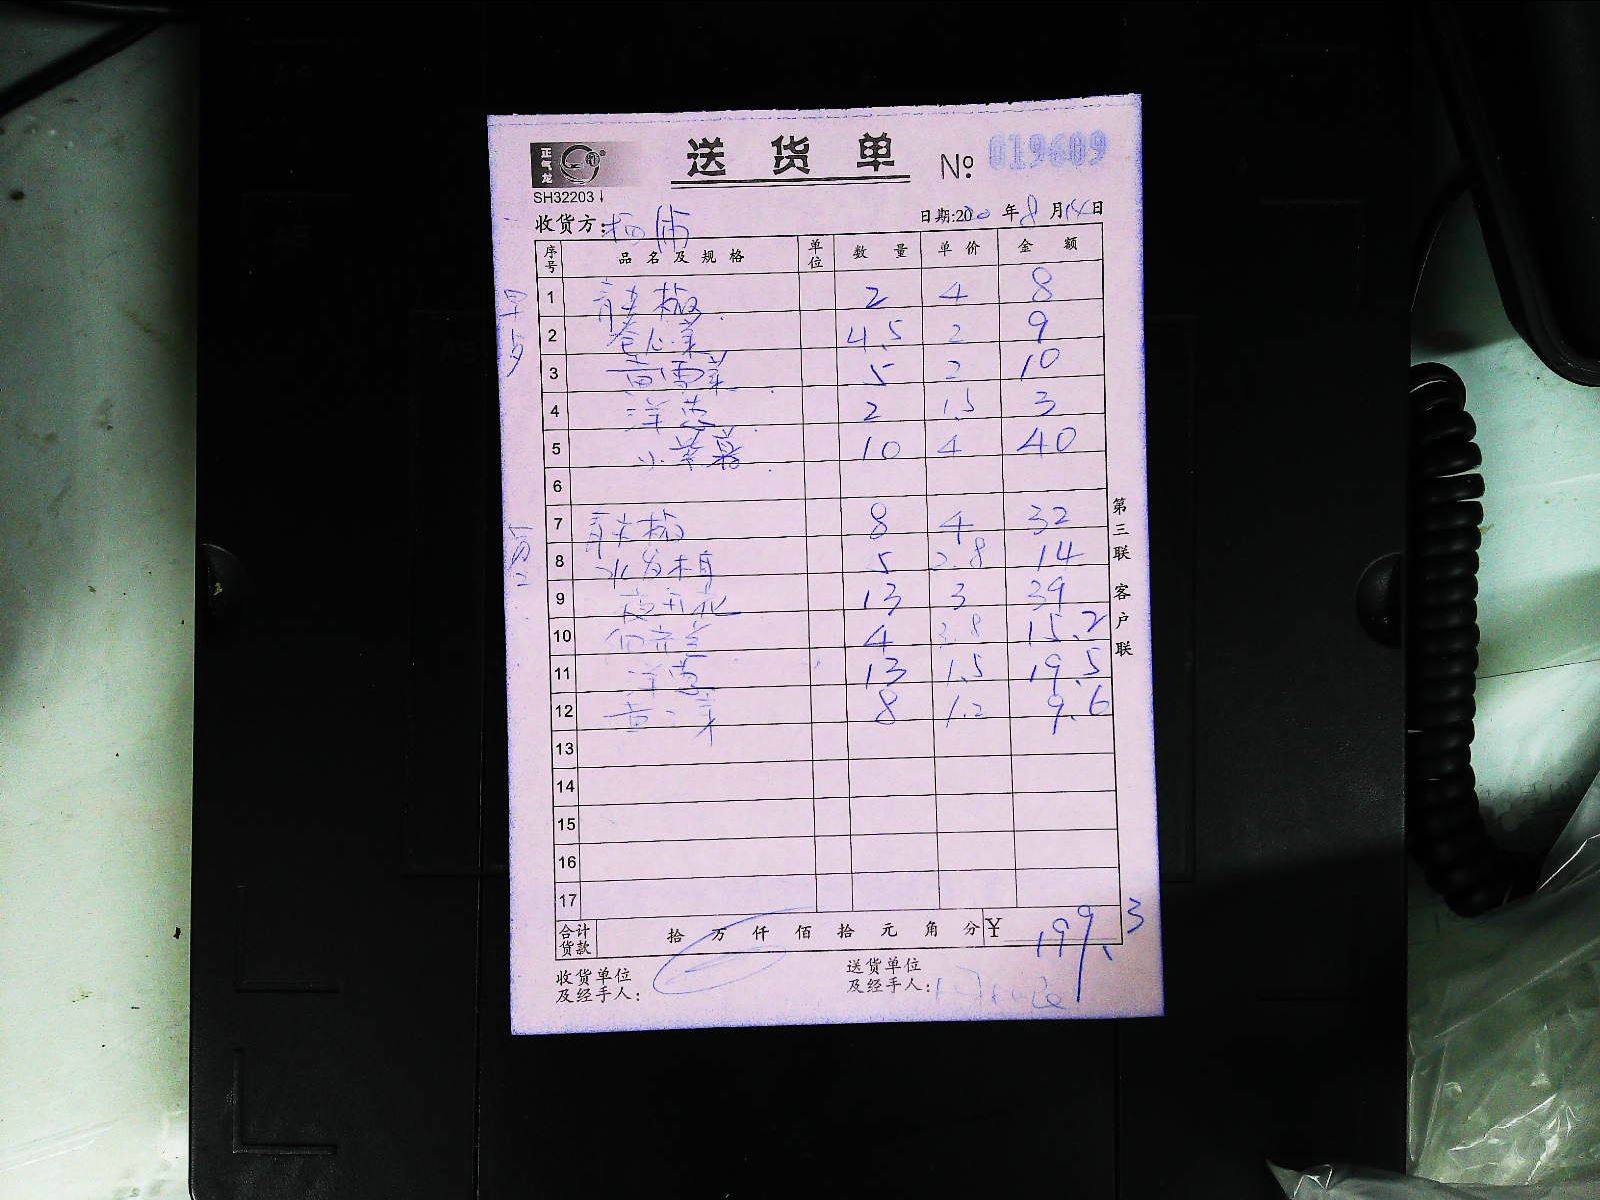 正气龙
送货单 № 019609
SH32203↓
收货方: 日期:20 年8月14日
序号 品名及规格 单位 数量 单价 金额
早点
1 青椒 2 4 8
2 卷心菜 4.5 2 9
3 5 2 10
4 洋葱 2 1.5 3
5 10 4 40
6
7 青椒 8 4 32
8 水发木耳 5 2.8 14
9 夜开花 13 3 39
10 4 3.8 15.2
11 洋葱 13 1.5 19.5
12 8 1.2 9.6
13
14
15
16
17
合计货款 拾 万 仟 佰 拾 元 角 分 ¥ 199.3
收货单位及经手人:
送货单位及经手人:
第三联 客户联